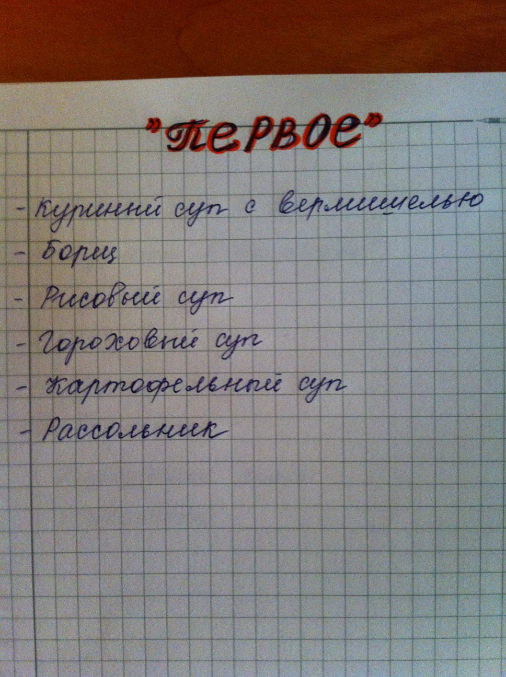 "Первое"
- Куриный суп с вермишелью
- Борщ
- Рисовый суп
- Гороховый суп
- Картофельный суп
- Рассольник